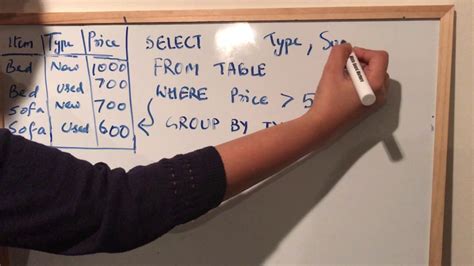 Item Type Price
Bed New 1000
Bed Used 700
Sofa New 700
Sofa Used 600
SELECT Type,
FROM TABLE
WHERE Price > 5
GROUP BY